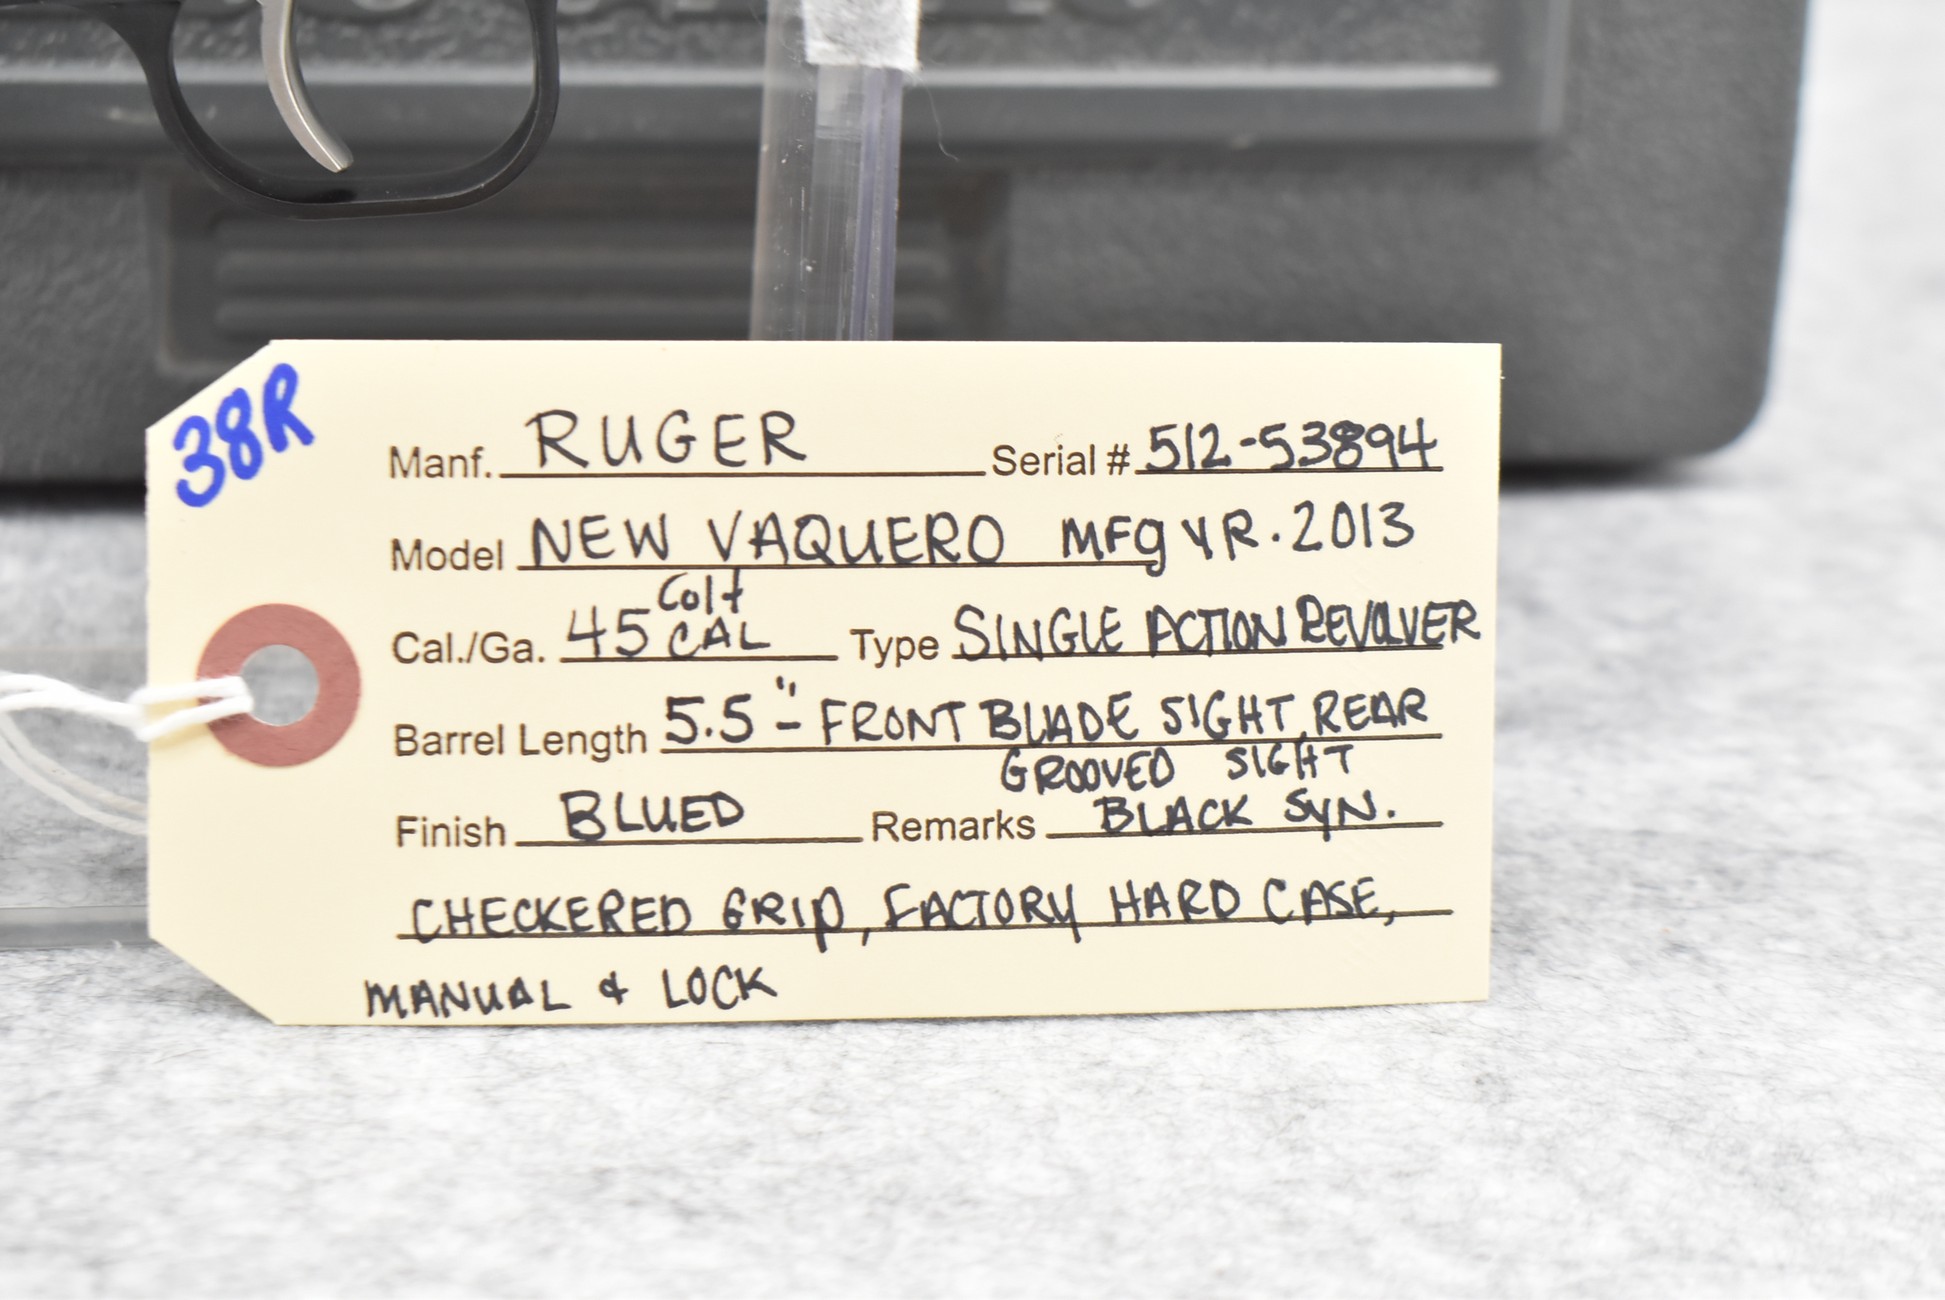 38R
Manf. RUGER Serial # 512-53894
Model NEW VAQUERO MFg YR. 2013
Cal./Ga. 45 Colt CAL Type SINGLE ACTION REVOLVER
Barrel Length 5.5" - FRONT BLADE SIGHT, REAR
GROOVED SIGHT
Finish BLUED Remarks BLACK SYN.
CHECKERED GRIP, FACTORY HARD CASE,
MANUAL & LOCK